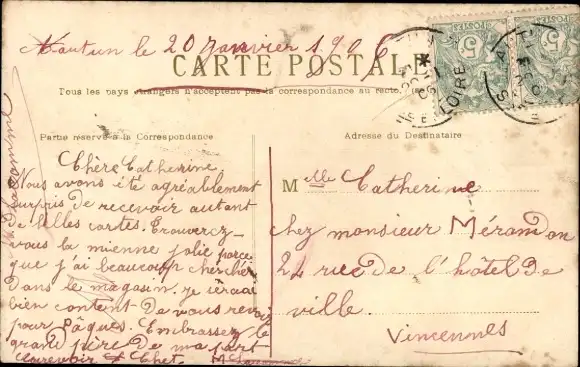 le 20 Janvier 1906
CARTE POSTALE
Tous les pays étrangers n'acceptent pas la correspondance au recto
Partie réservée à la Correspondance
Adresse du Destinataire
Chère Catherine
Nous avons été agréablement
surpris de recevoir autant
de belles cartes. Trouverez-
vous la mienne jolie parce
que j'ai beaucoup chercher
dans le magasin. je serai
bien content de vous revoir
pour Pâques. Embrassez le
grand père de ma part
Aurevoir
Melle Catherine
chez monsieur Mérandon
24 rue de l'hôtel de
ville
Vincennes
POSTES
POSTES
5
5
LOIRE